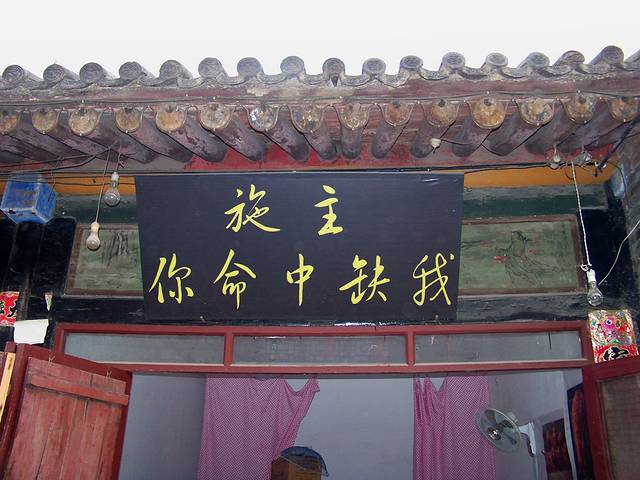 施主
你命中缺我